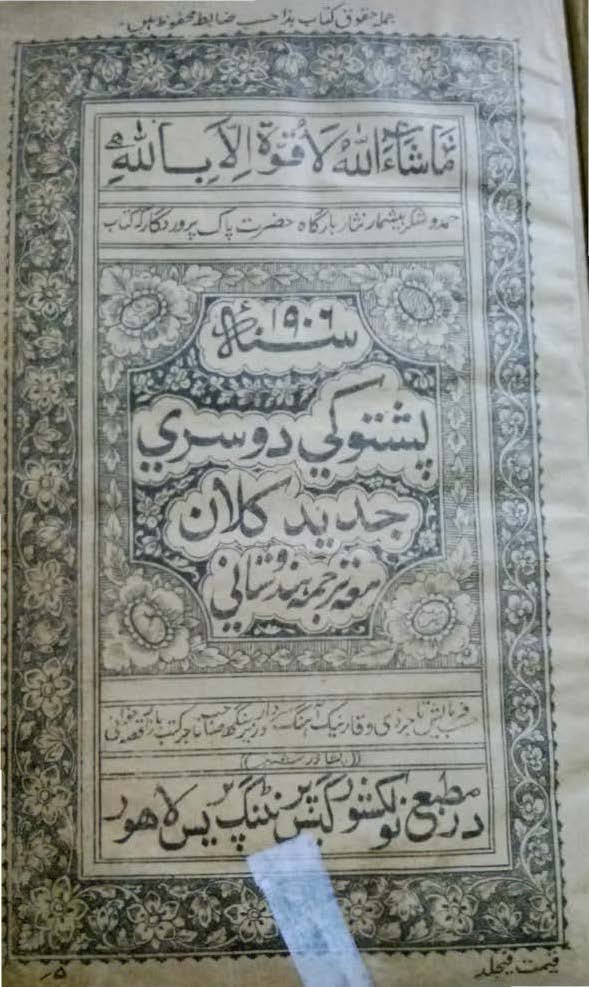 جملہ حقوق کتاب ہذا حسب ضابطہ محفوظ ہیں
مَا شَاءَ اللّٰهُ لَا قُوَّةَ اِلَّا بِاللّٰهِ
حمد و شکر بیشمار نثار بارگاہ حضرت پاک پروردگار کہ کتاب
سنہ ۱۹۰۶ء
پشتو کي دوسري
جديد کلان
معہ ترجمہ ہندوستاني
حسب فرمایش تاجر ذی وقار نیک آہنگ سردار سنگھ صاحب تاجر کتب بازار قصہ خوانی
در مطبع نولکشور گیس پرنٹنگ پریس لاهور
قیمت فیجلد
۵